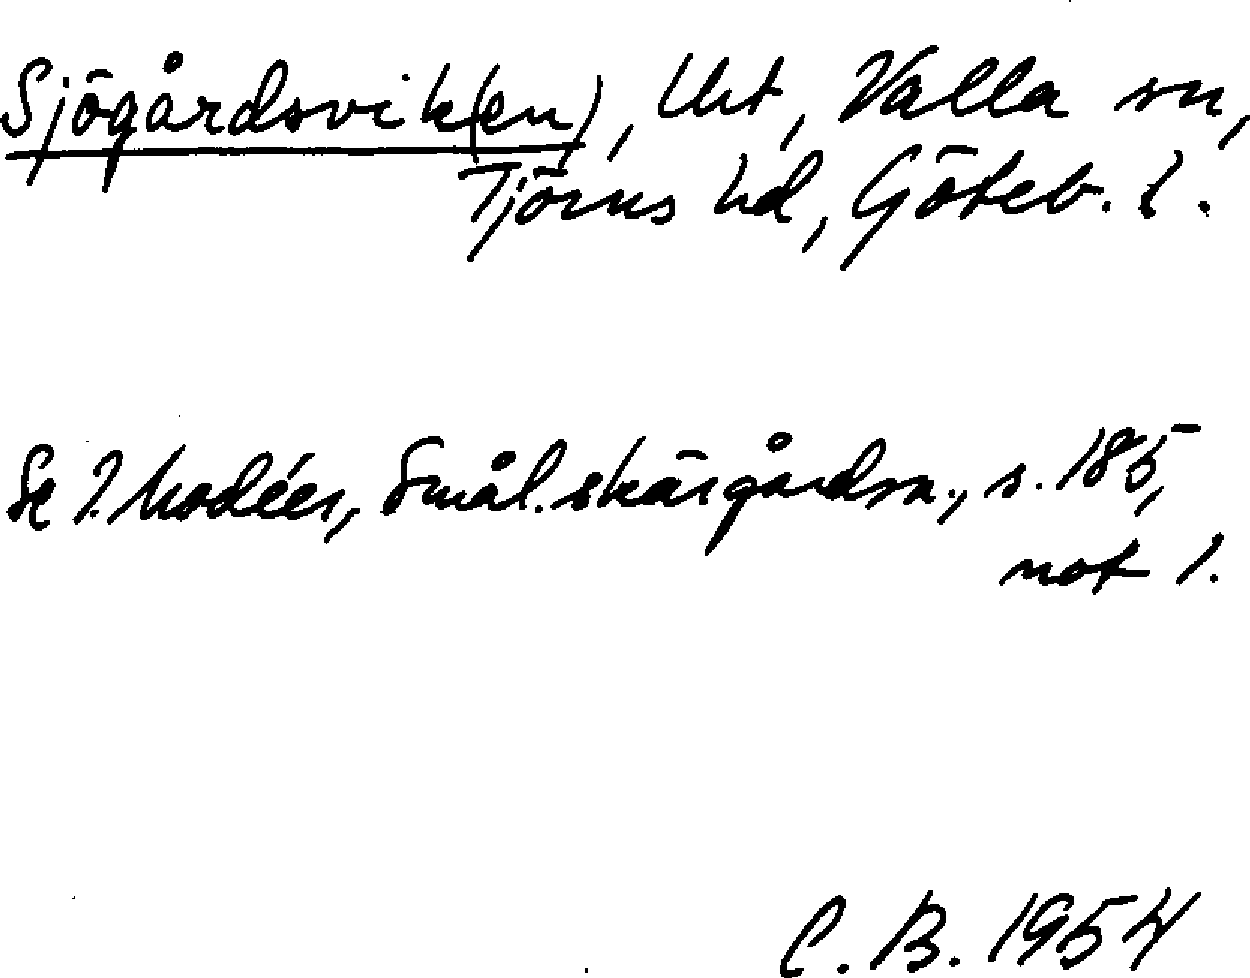 Sjögårdsvik(en), Urt, Valla sn,
Tjörns hd, Göteb. l.
Se I. Modéer, Smål. skärgårdsn., s. 185,
not 1.
C. B. 1954